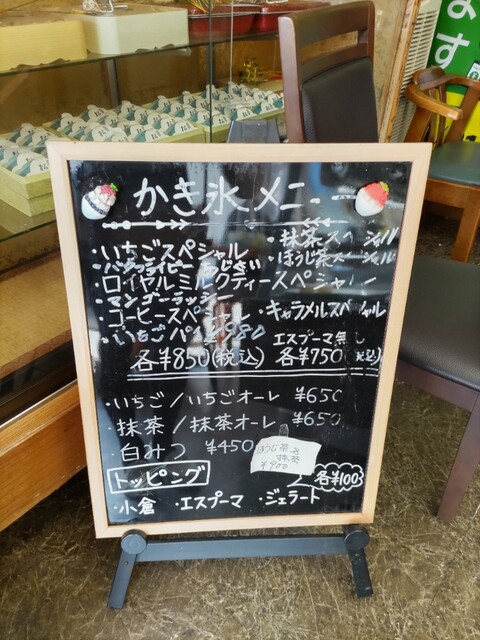 かき氷メニュー
・いちごスペシャル
・抹茶スペシャル
・ほうじ茶スペシャル
ロイヤルミルクティースペシャル
・マンゴーラッシー
・コーヒースペシャル
・キャラメルスペシャル
・いちごパイン 980
エスプーマ無し
各¥850(税込) 各¥750(税込)
・いちご/いちごオーレ ¥650
・抹茶/抹茶オーレ ¥650
・白みつ ¥450
ほうじ茶
抹茶
¥900
トッピング
各¥100
・小倉 ・エスプーマ ・ジェラート
ます